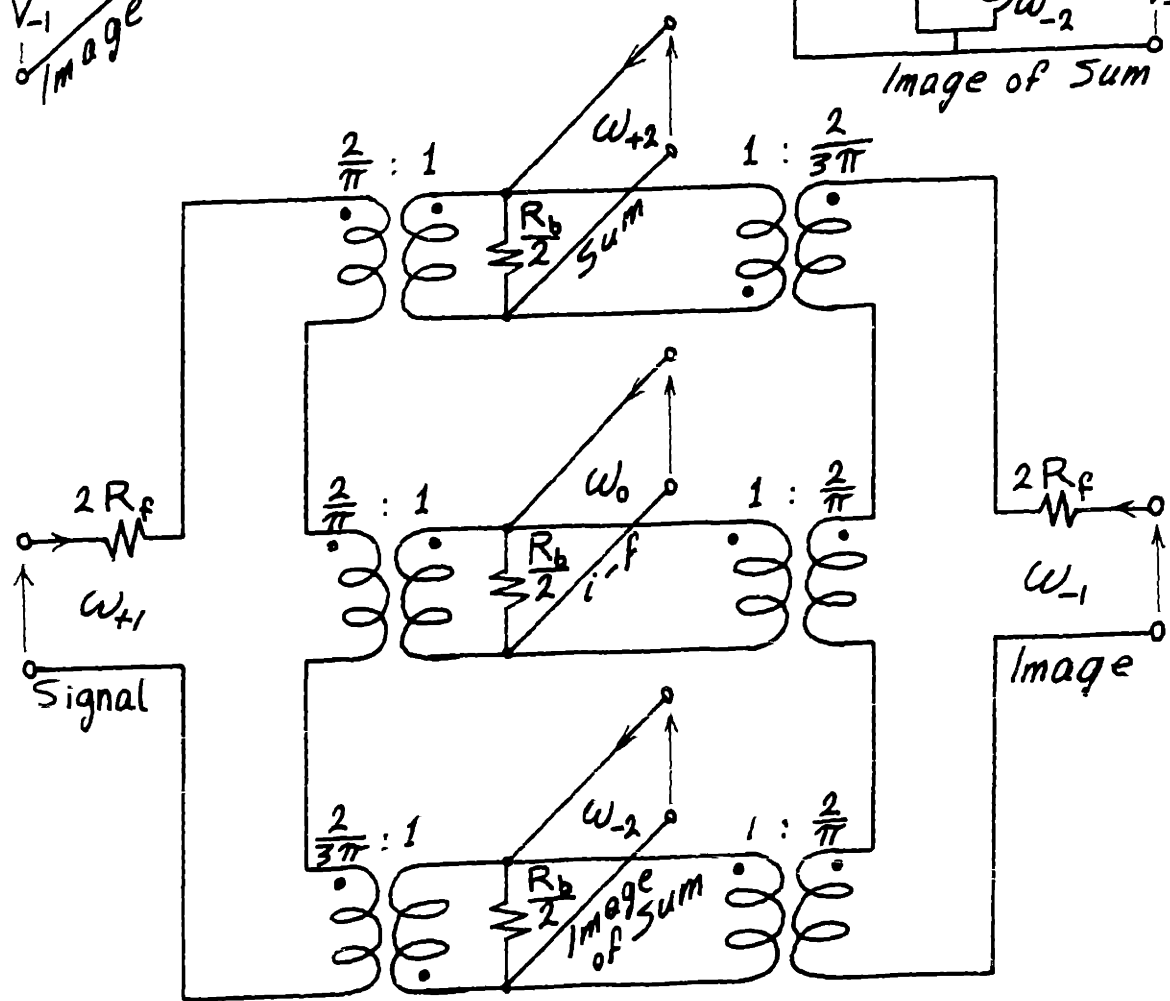 V₋₁
Image
ω₋₂
Image of Sum
2/π : 1
ω₊₂
1 : 2/3π
R_b/2
Sum
2 R_f
ω₊₁
Signal
2/π : 1
ω₀
1 : 2/π
R_b/2
i-f
2 R_f
ω₋₁
Image
2/3π : 1
ω₋₂
1 : 2/π
R_b/2
Image
of Sum